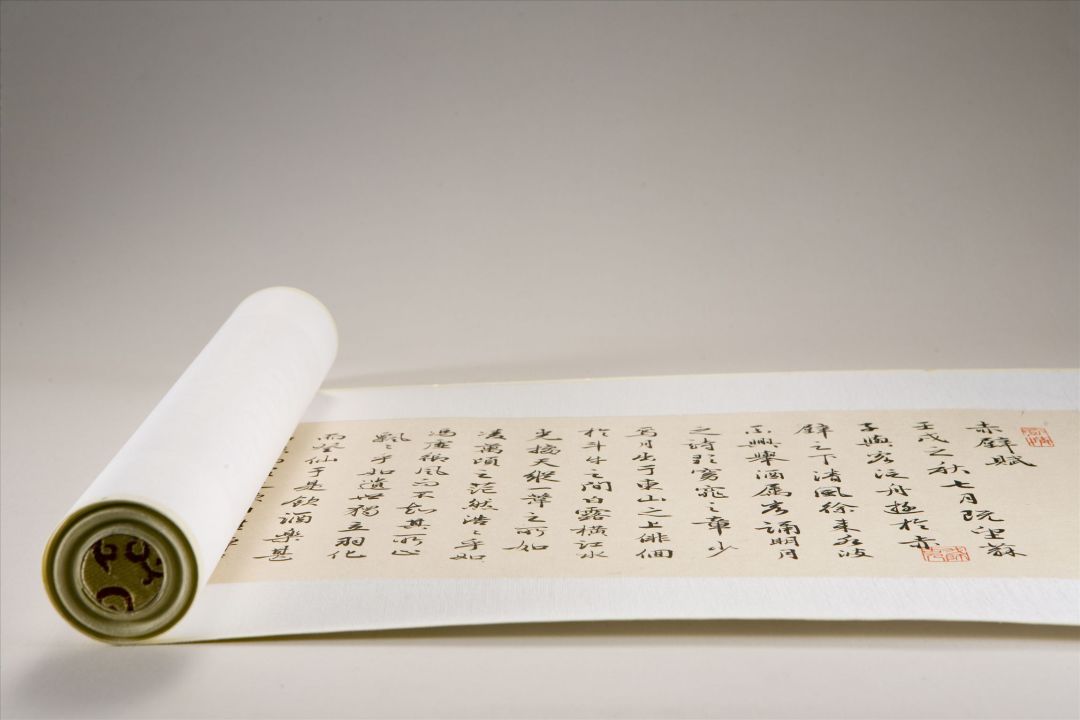 赤壁賦
壬戌之秋七月既望蘇
子與客泛舟遊於赤
壁之下清風徐來水波
不興舉酒屬客誦明月
之詩歌窈窕之章少
焉月出于東山之上徘徊
於斗牛之間白露橫江水
光接天縱葦之所如
凌萬頃之茫然浩浩乎如
馮虛御風而不知其所止
飄飄乎如遺世獨立羽化
而登仙于是飲酒樂甚